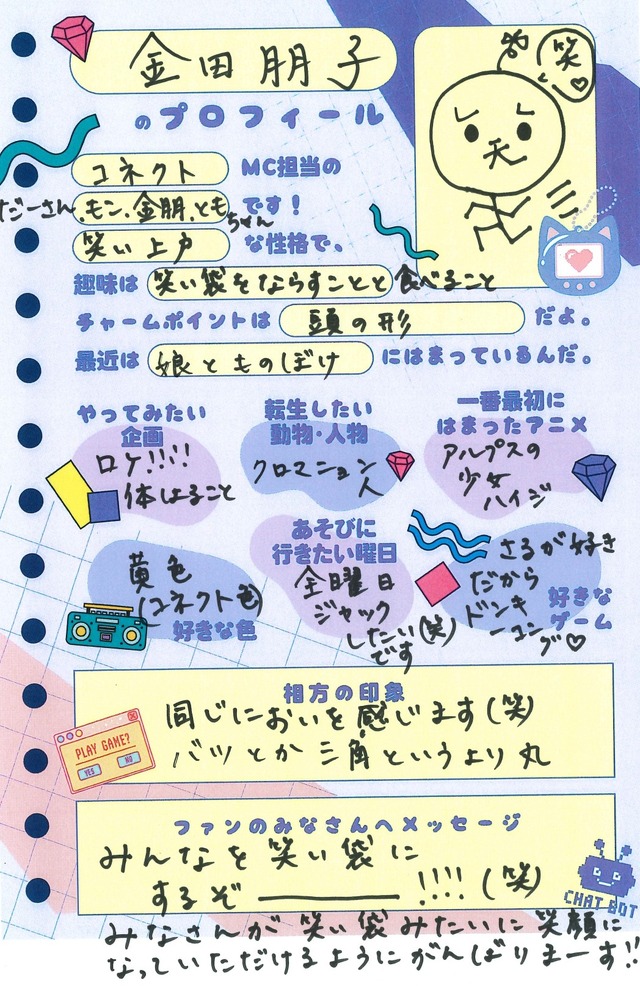 金田朋子
のプロフィール
笑♡
コネクト MC担当の
だーさん.モン.金朋.ともちゃん です！
笑い上戸 な性格で、
趣味は 笑い袋をならすことと食べること
チャームポイントは 頭の形 だよ。
最近は 娘とものぼけ にはまっているんだ。
やってみたい
企画
ロケ!!!!
体はること
転生したい
動物・人物
クロマニョン
人
一番最初に
はまったアニメ
アルプスの
少女
ハイジ
黄色
(コネクト色)
好きな色
あそびに
行きたい曜日
金曜日
ジャック
したい(笑)
です
さるが好き
だから
ドンキ
ーコング♡
好きな
ゲーム
相方の印象
同じにおいを感じます(笑)
バツとか三角というより丸
PLAY GAME?
YES NO
ファンのみなさんへメッセージ
みんなを笑い袋に
するぞ――!!!!(笑)
CHAT BOT
みなさんが笑い袋みたいに笑顔に
なっていただけるようにがんばりまーす!!